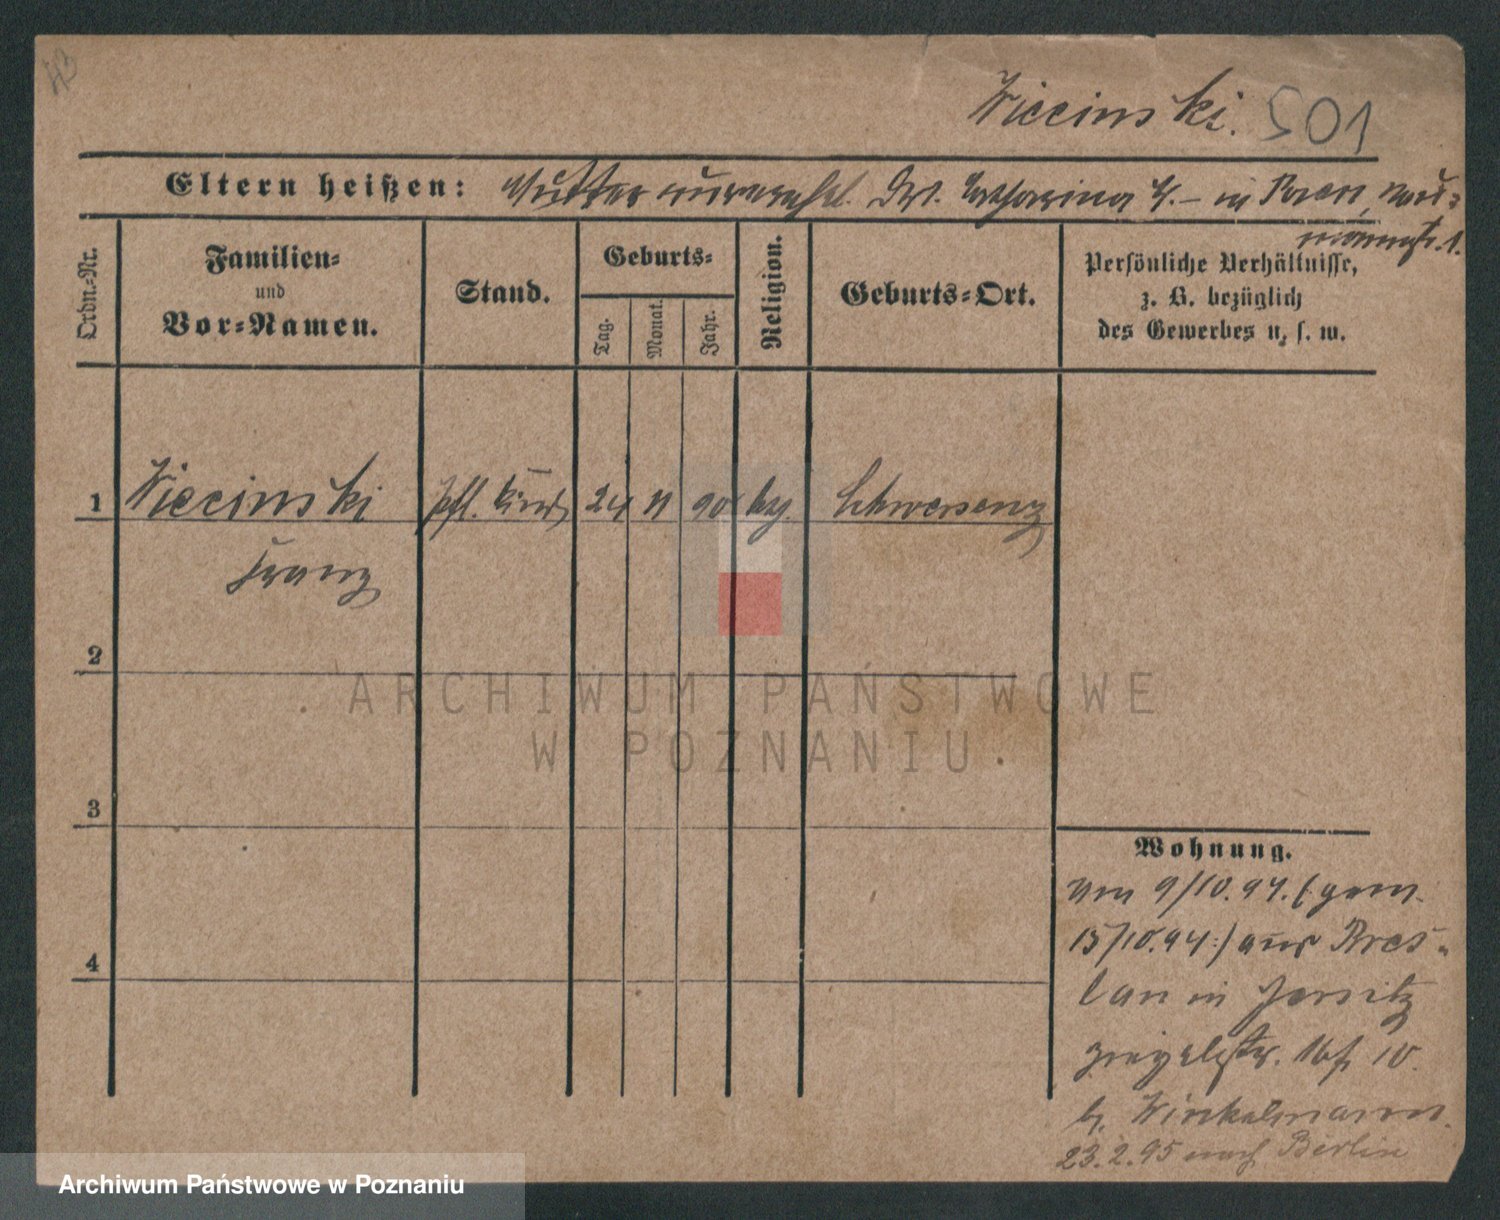 43
Wiecinski. 501
Eltern heißen: Mutter unverehel. Katharina W. – in Posen, Nau=
mannstr. 1.
Ordn.-Nr.
Familien=
und
Vor=Namen.
Stand.
Geburts=
Tag.
Monat.
Jahr.
Religion.
Geburts=Ort.
Persönliche Verhältnisse,
z. B. bezüglich
des Gewerbes u. s. w.
1 Wiecinski Pfl. Kind 24 11 90 Schwersenz
Franz
2
3
4
Wohnung.
am 9/10.94. (: gem.
15/10.94 :) aus Bres=
lau in Jersitz
10.
b. Winkelmann.
23.2.95 nach Berlin
ARCHIWUM PAŃSTWOWE
W POZNANIU
Archiwum Państwowe w Poznaniu